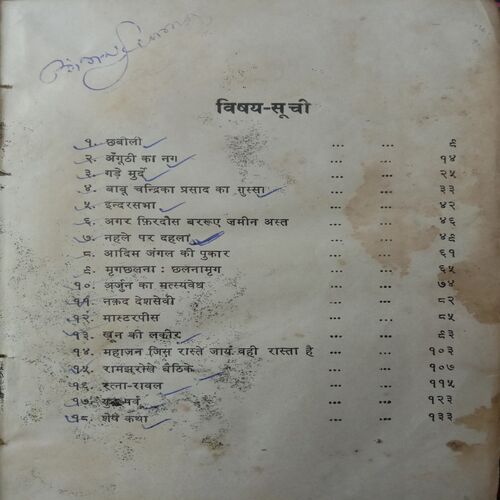 विषय-सूची
१. छबीली ... ... ९
२. अँगूठी का नग ... ... १४
३. गड़े मुर्दे ... ... २५
४. बाबू चन्द्रिका प्रसाद का गुस्सा ... ... ३३
५. इन्दरसभा ... ... ४२
६. अगर फ़िरदौस बररूए ज़मीन अस्त ... ... ४६
७. नहले पर दहला ... ... ४९
८. आदिम जंगल की पुकार ... ... ६१
९. मृगछलना : छलनामृग ... ... ६५
१०. अर्जुन का मत्स्यवेध ... ... ७४
११. नक़द देशसेवी ... ... ८२
१२. मास्टरपीस ... ... ८५
१३. खून की लकीर ... ... ९३
१४. महाजन जिस रास्ते जायें वही रास्ता है ... ... १०३
१५. रामझरोखे बैठिके ... ... १०७
१६. रत्ना-रावल ... ... ११५
१७. पर्व ... ... १२३
१८. शेष कथा ... ... १३३